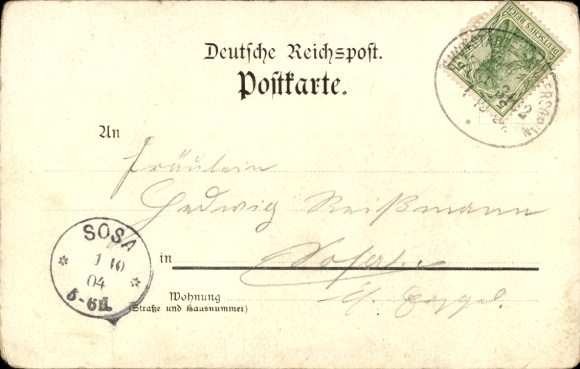 Deutsche Reichspost.
Postkarte.
DEUTSCHES REICH
An
Fräulein
Hedwig Reißmann
SOSA
1 10
04
5-6N.
in
Wohnung
(Straße und Hausnummer)